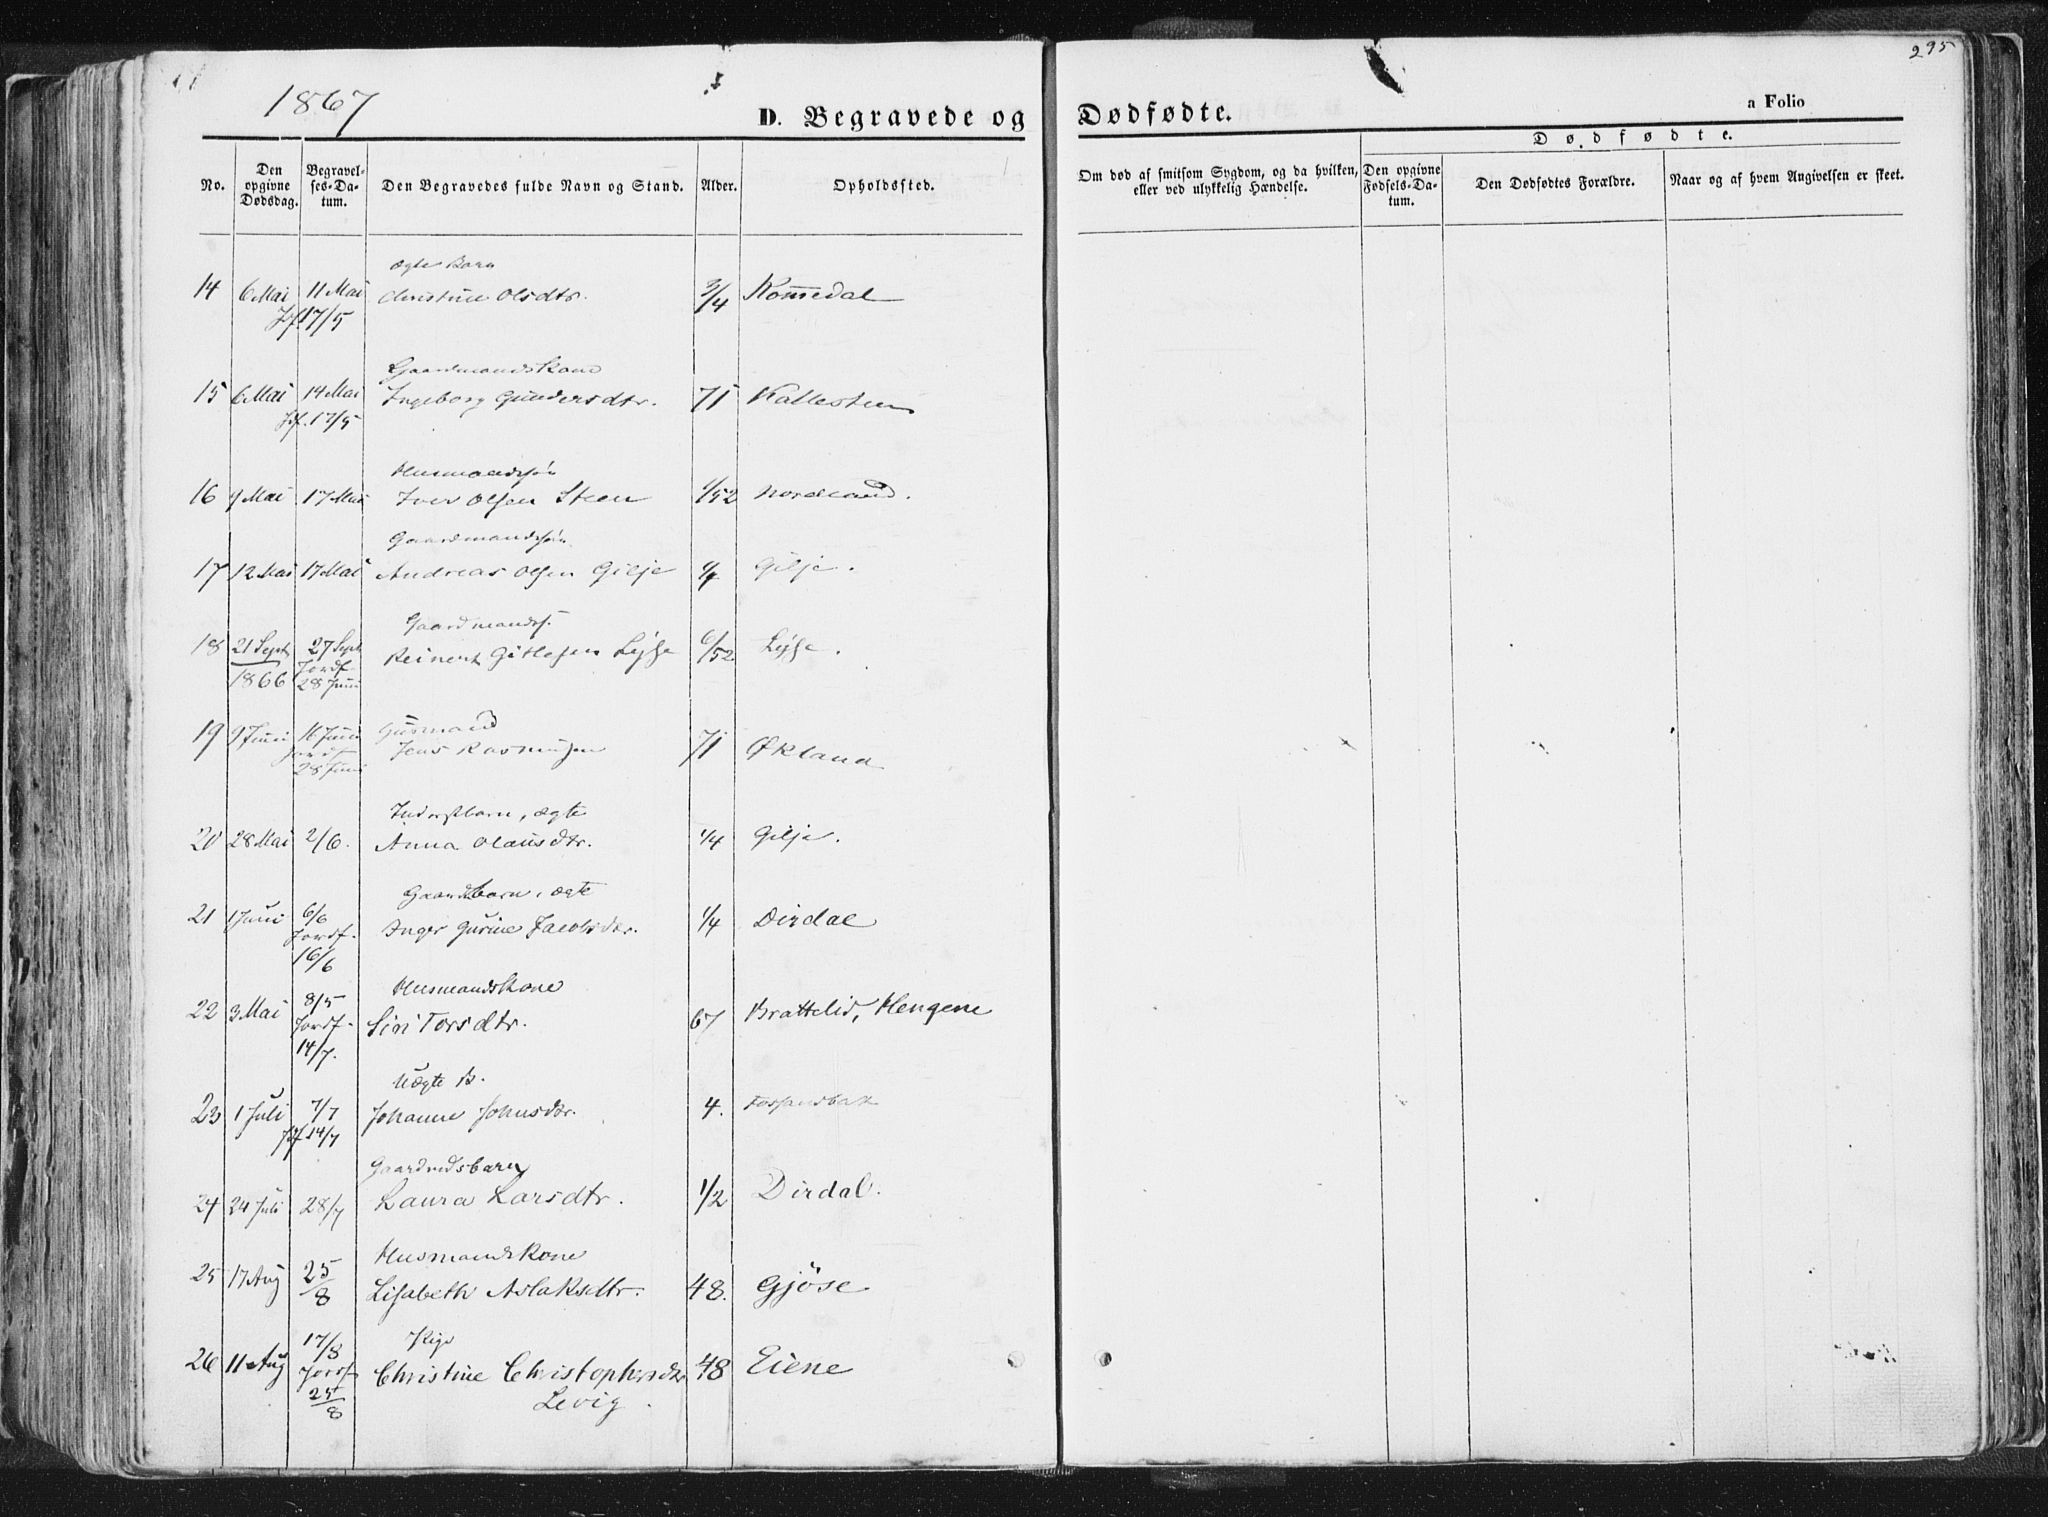 1867
295
D. Begravede og Dødfødte.
a Folio
No.
Den opgivne Dødsdag.
Begravel-ses-Da-tum.
Den Begravedes fulde Navn og Stand.
Alder.
Opholdssted.
Om død af smitsom Sygdom, og da hvilken, eller ved ulykkelig Hændelse.
Dødfødte.
Den opgivne Fødsels-Da-tum.
Den Dødfødtes Forældre.
Naar og af hvem Angivelsen er skeet.
ægte Barn
14 6 Mai 11 Mai Christine Olsdtr. 3/4 Kommedal
Jf. 17/5
Gaardmandskone
15 6 Mai 14 Mai Ingeborg Gundersdtr. 71 Kallesteen
Jdf. 17/5
Husmandssøn
16 9 Mai 17 Mai Iver Olsen Steen 1/52 Nordland.
Gaardmandssøn
17 12 Mai 17 Mai Andreas Olsen Gilje 1/4 Gilje.
Gaardmandss.
18 21 Sept 27 Sept Reinert Gitlesen Lyse 6/52 Lyse.
1866 Jordf. 28 Juni
Husmand
19 9 Juni 16 Juni Jens Rasmusen 71 Økland
Jordf 28 Juni
Inderstbarn, ægte
20 28 Mai 2/6. Anna Olausdtr. 1/4 Gilje.
Gaardsbarn, ægte
21 1 Juni 6/6 Inger Gurine Jacobsdtr. 1/4 Dirdal
Jordf. 16/6
Husmandskone
22 3 Mai 8/5 Siri Torsdtr. 67 Brattelid, Hengene
Jordf. 14/7.
Uægte B.
23 1 Juli 7/7 Johanne Johnsdtr. 4. Fossansbak
Jdf 14/7
Gaardmdsbarn
24 24 Juli 28/7 Laura Larsdtr. 1/2 Dirdal.
Husmandskone
25 17 Aug 25/8 Lisabeth Aslaksdtr. 48. Gjöse
Pige
26 11 Aug 17/8 Christine Christophersdtr 48 Eiene
Jordf 25/8 Levig.